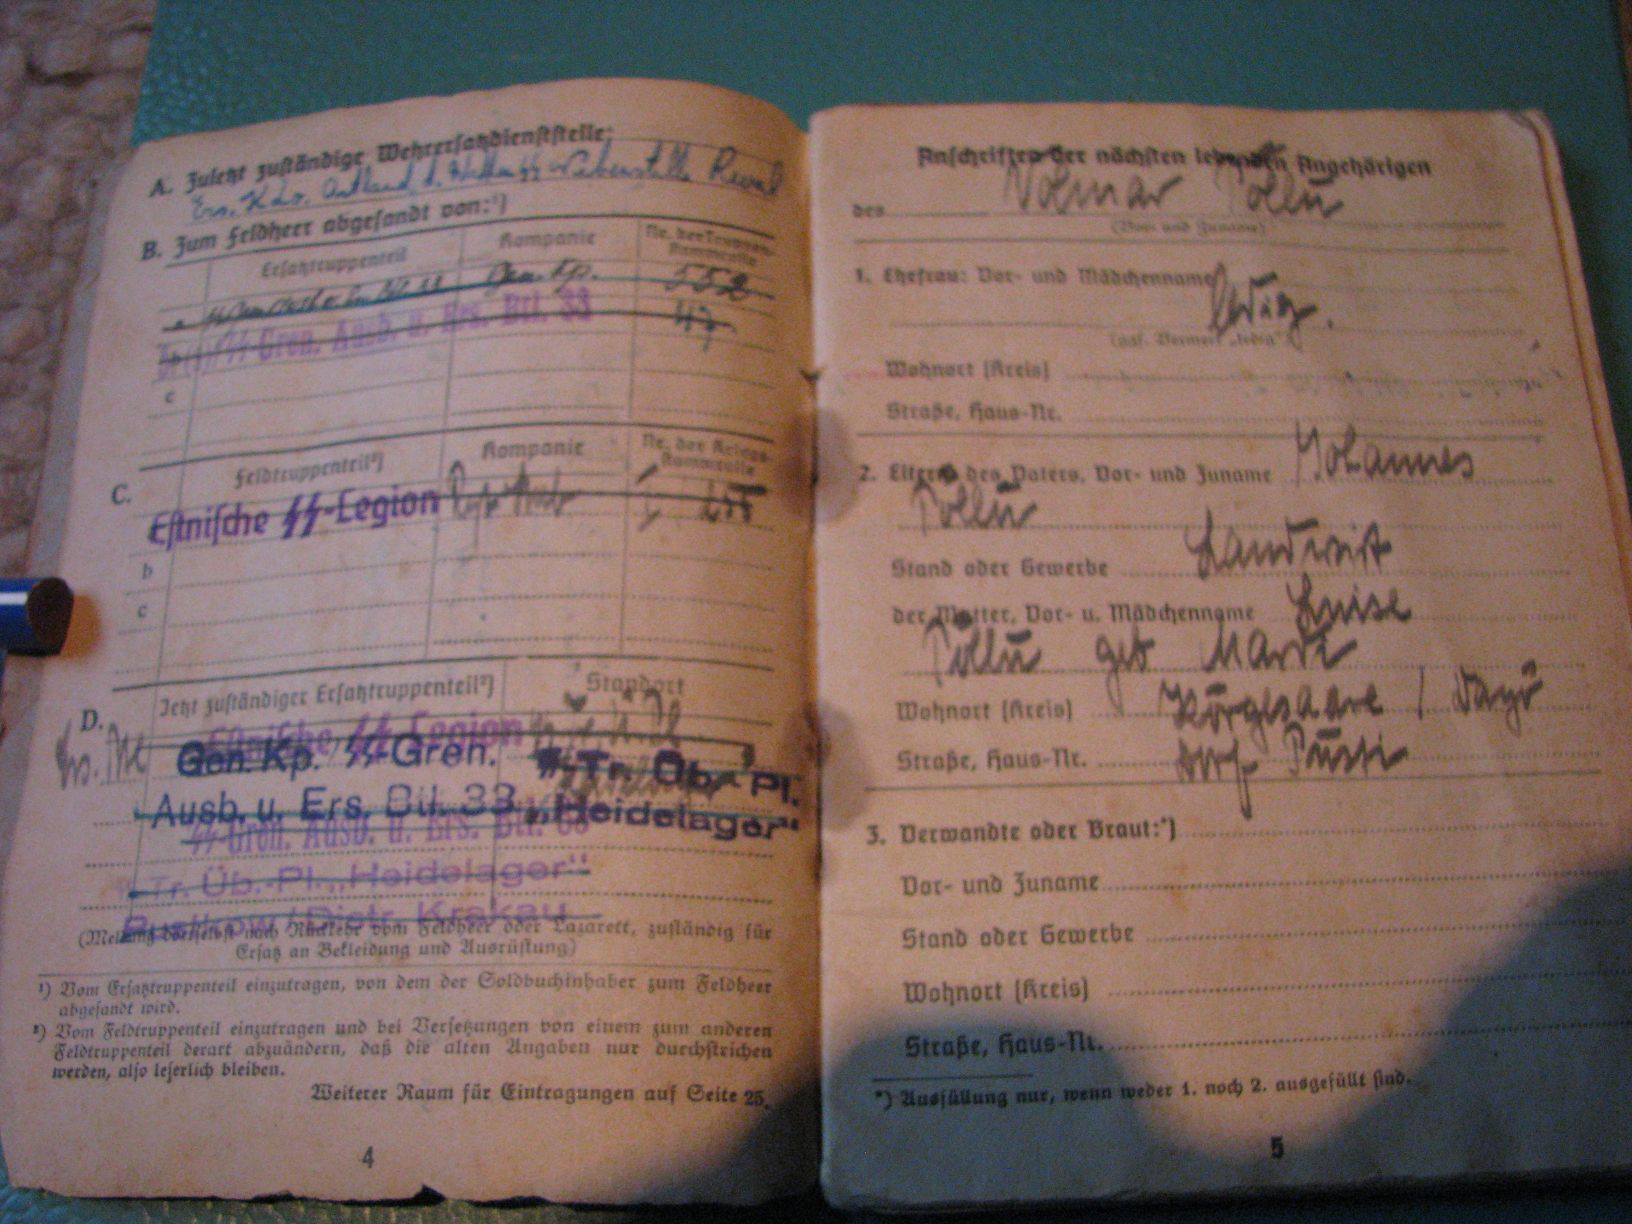 A. Zuletzt zuständige Wehrersatzdienststelle:
Ers. Kdo. Ostland d. Waffen SS Nebenstelle Reval
B. Zum Feldheer abgesandt von:¹)
Ersatztruppenteil Kompanie Nr. der Truppenstammrolle
a Gen. Kp. 552
SS-Gren. Ausb. u. Ers. Btl. 33 47
c
C.
Feldtruppenteil²) Kompanie Nr. der Kriegsstammrolle
Estnische SS-Legion
b
c
D. Jetzt zuständiger Ersatztruppenteil²) Standort
Estnische SS-Legion
Gen. Kp. SS-Gren. SS-Tr. Üb.-Pl.
Ausb. u. Ers. Btl. 33 „Heidelager"
SS-Gren. Ausb. u. Ers. Btl. 33
Tr. Üb.-Pl. „Heidelager"
Pustkow / Distr. Krakau
(Meldung daselbst nach Rückkehr vom Feldheer oder Lazarett, zuständig für
Ersatz an Bekleidung und Ausrüstung)
¹) Vom Ersatztruppenteil einzutragen, von dem der Soldbuchinhaber zum Feldheer
abgesandt wird.
²) Vom Feldtruppenteil einzutragen und bei Versetzungen von einem zum anderen
Feldtruppenteil derart abzuändern, daß die alten Angaben nur durchstrichen
werden, also leserlich bleiben.
Weiterer Raum für Eintragungen auf Seite 25.
4
Anschriften der nächsten lebenden Angehörigen
des Volmar Põllu
(Vor- und Zuname)
1. Ehefrau: Vor- und Mädchenname
ledig.
(ggf. Vermerk „ledig")
Wohnort (Kreis)
Straße, Haus-Nr.
2. Eltern: des Vaters, Vor- und Zuname Johannes
Põllu
Stand oder Gewerbe Landwirt
der Mutter, Vor- u. Mädchenname Luise
Põllu geb Mardi
Wohnort (Kreis) Kõrgessaare / Dagö
Straße, Haus-Nr. Dorf Pusti
3. Verwandte oder Braut:*)
Vor- und Zuname
Stand oder Gewerbe
Wohnort (Kreis)
Straße, Haus-Nr.
*) Ausfüllung nur, wenn weder 1. noch 2. ausgefüllt sind.
5